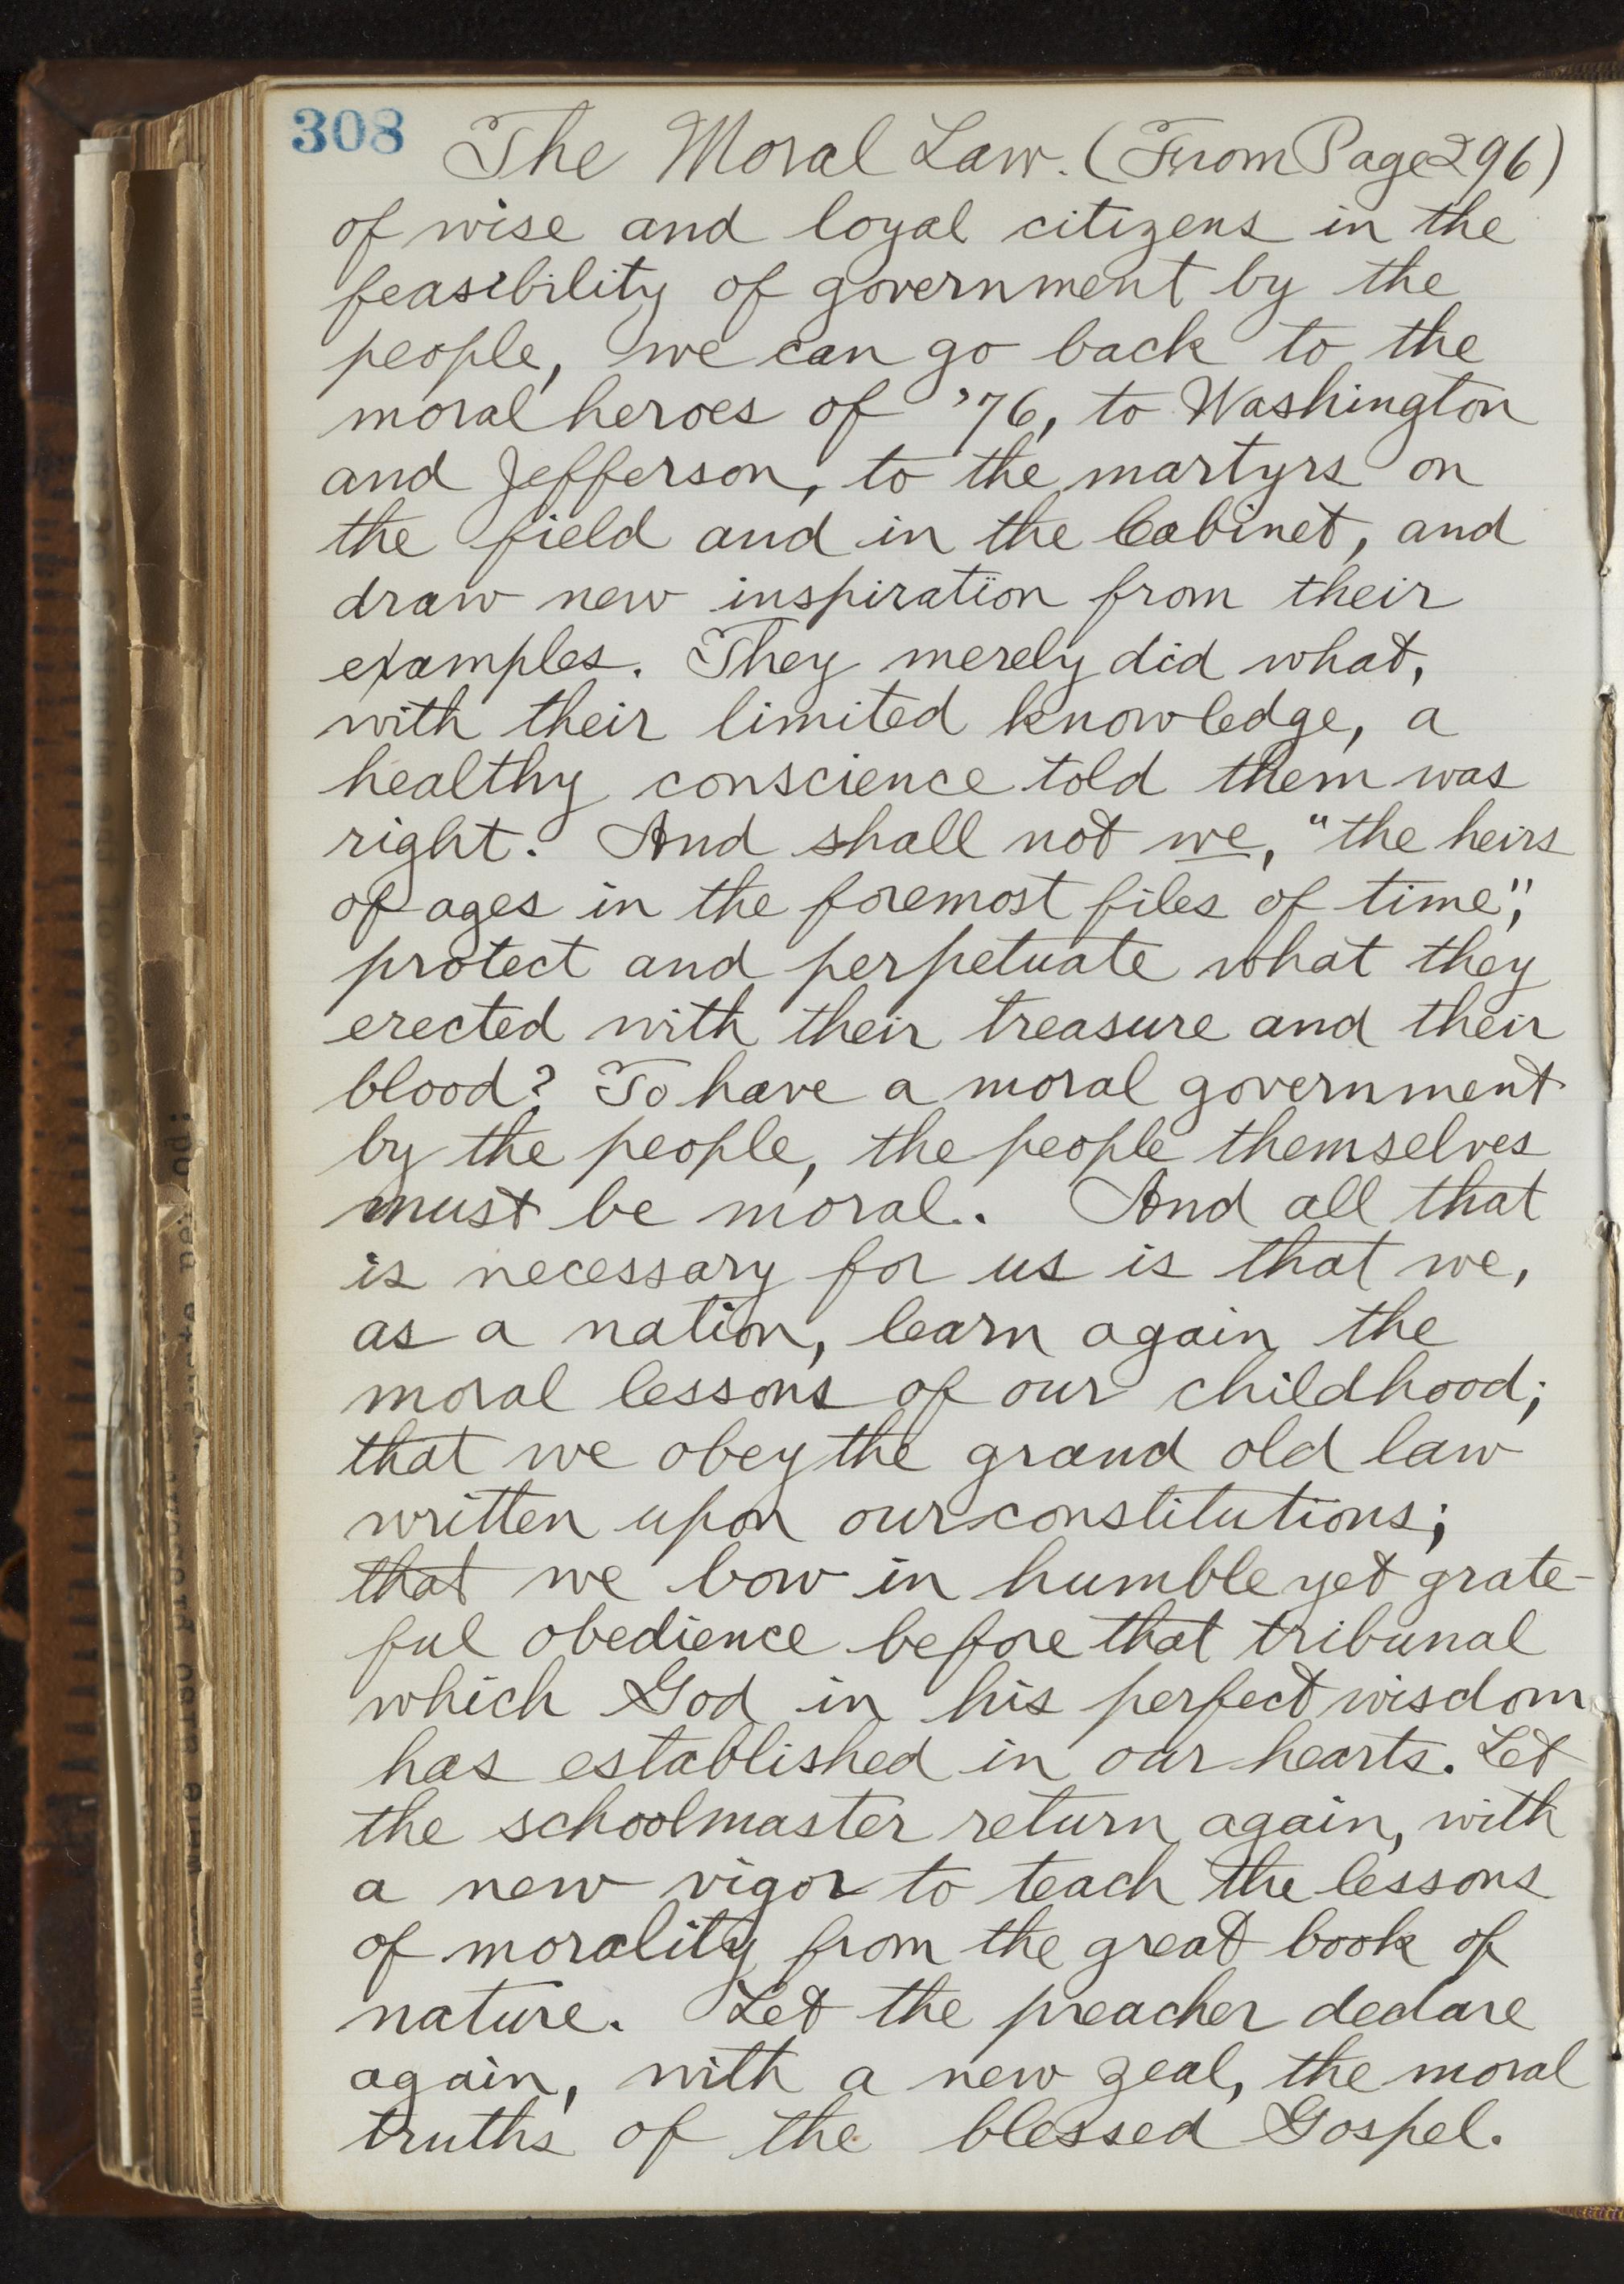 308 The Moral Law. (From Page 296)
of wise and loyal citizens in the
feasibility of government by the
people, we can go back to the
moral heroes of '76, to Washington
and Jefferson, to the martyrs on
the field and in the Cabinet, and
draw new inspiration from their
examples. They merely did what,
with their limited knowledge, a
healthy conscience told them was
right. And shall not we, "the heirs
of ages in the foremost files of time",
protect and perpetuate what they
erected with their treasure and their
blood? To have a moral government
by the people, the people themselves
must be moral. And all that
is necessary for us is that we,
as a nation, learn again the
moral lessons of our childhood;
that we obey the grand old law
written upon our constitutions;
that we bow in humble yet grate-
ful obedience before that tribunal
which God in his perfect wisdom
has established in our hearts. Let
the schoolmaster return again, with
a new vigor to teach the lessons
of morality from the great book of
nature. Let the preacher declare
again, with a new zeal, the moral
truths of the blessed Gospel.